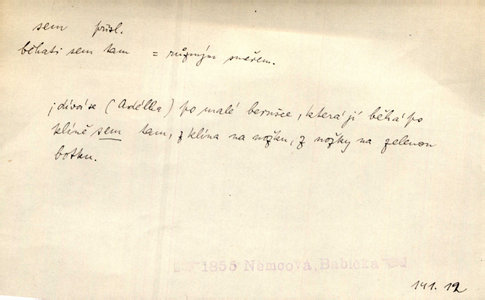 sem přísl.
běhati sem tam = různým směrem.
, dívá se (Adélka) po malé berušce, která jí běhá po
klíně sem tam, z klína na nožku, z nožky na zelenou
botku.
1855 Němcová, Babička
141. 12